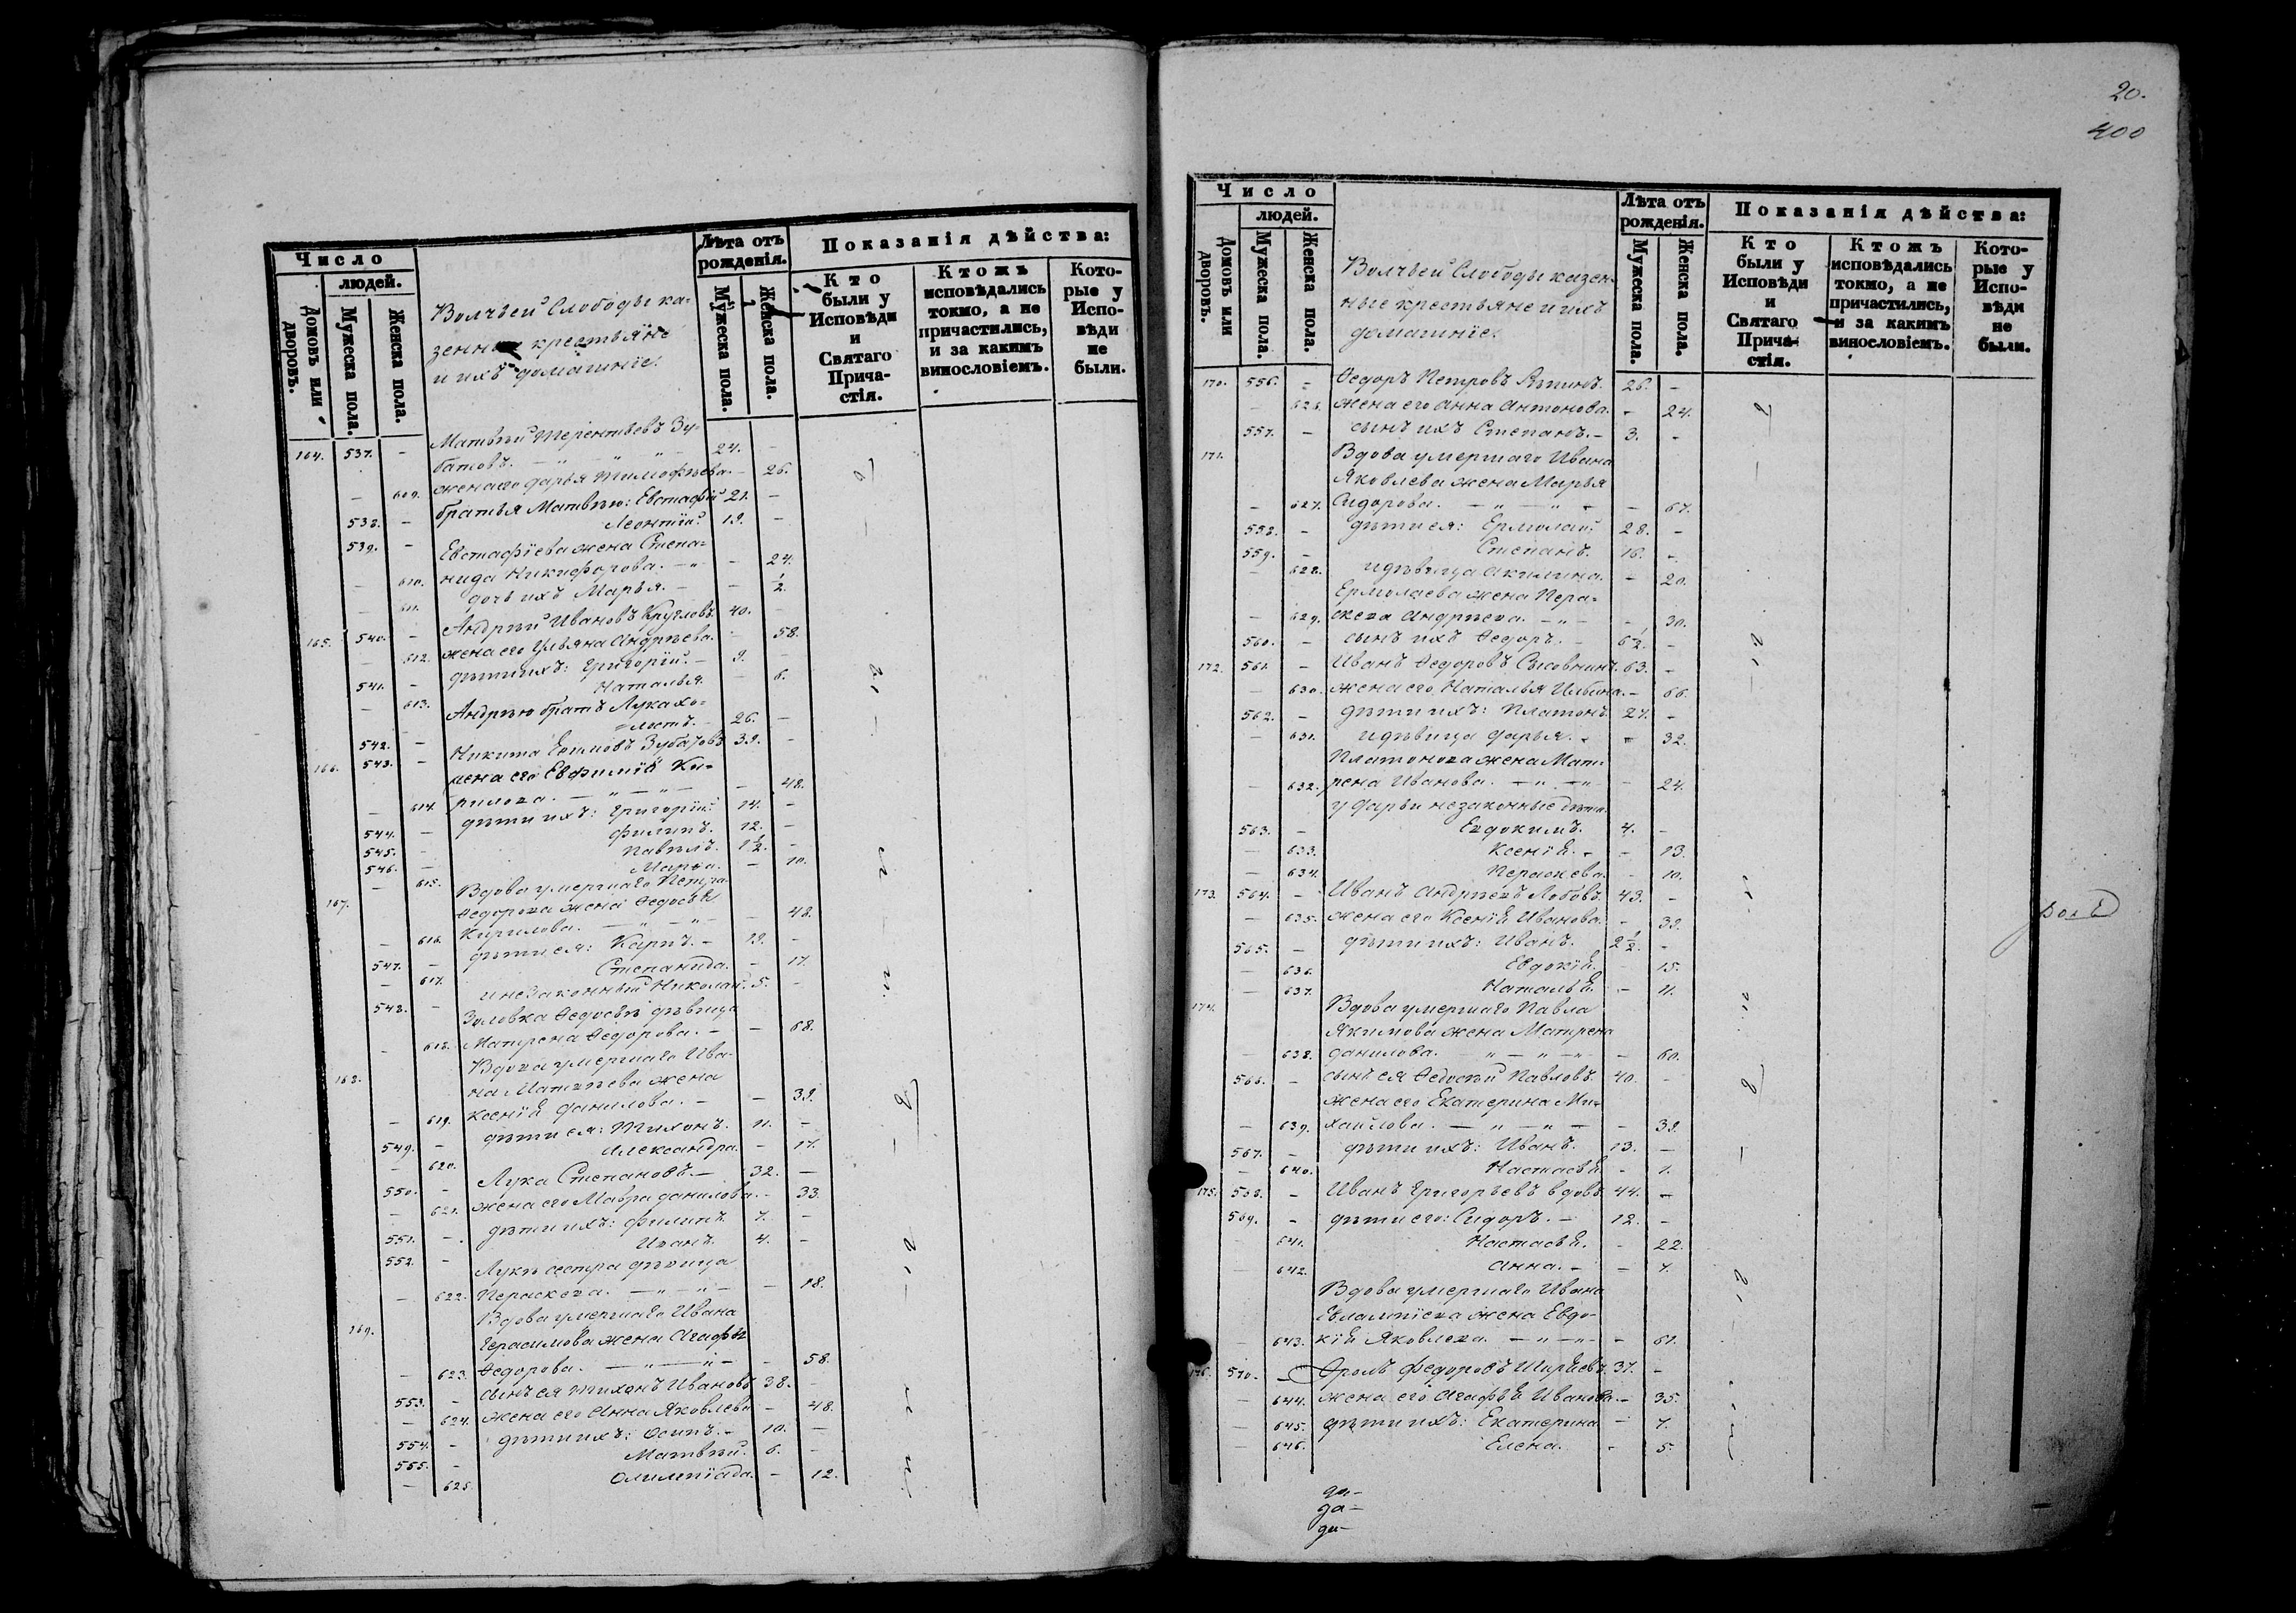 Число
людей.
Домовъ или дворовъ.
Мужеска пола.
Женска пола.
Волчьей Слободы ка-
зенные крестьяне
и ихъ домашніе.
Лѣта отъ рожденія.
Мужеска пола.
Женска пола.
Показанія дѣйства:
Кто были у Исповѣди и Святаго Прича-стія.
Ктожъ исповѣдались токмо, а не причастились, и за какимъ винословіемъ.
Кото-рые у Испо-вѣди не были.
Матвѣй Терентьевъ Зу-
164. 537. - батовъ. - " - " - 24. -
- 609. жена его Дарья Тимофѣева. - 26.
538. - братья Матвѣю: Евстафій 21. -
539. - Леонтій. 19. -
Евстафіева жена Степа-
- 610. нида Никифорова. - " - - 24.
- 611. дочь ихъ Марья. - - 1/2.
165. 540. - Андрѣй Ивановъ Кругловъ 40. -
- 612. жена его Ульяна Андрѣева. - 58.
541. - дѣти ихъ: Григорій. - 9. -
- 613. Наталья. - 6.
Андрѣю братъ Лука хо-
542. - лостъ. - 26. -
166. 543. - Никита Ефимовъ Зубатовъ 39. -
жена его Евфимія Ки-
- 614. рилова. - " - " - - 48.
544. - дѣти ихъ: Григорій. 14. -
545. - Филипъ. 12. -
546. - Павелъ. 1 1/2. -
- 615. Марья. - 10.
167. Вдова умершаго Петра
Ѳедорова жена Ѳедосья
- 616. Кирилова. - " - " - - 48.
547. - дѣти ея: Карпъ. - 19. -
- 617. Степанида. - 17.
548. - и незаконный Николай. 5. -
Золовка Ѳедосьѣ дѣвица
- 618. Матрена Ѳедорова. - - 68.
168. Вдова умершаго Ива-
на Матвѣева жена
- 619. Ксенія Данилова. - - 39.
549. - дѣти ея: Тихонъ. 11. -
- 620. Александра. - 17.
550. - Лука Степановъ. - 32. -
- 621. жена его Мавра Данилова. - 33.
551. - дѣти ихъ: Филипъ. 7. -
552. - Иванъ. 4. -
Лукѣ сестра дѣвица
- 622. Пераскева. - " - " - - 18.
169. Вдова умершаго Ивана
Герасимова жена Агафья
- 623. Ѳедорова. - " - " - - 58.
553. - сынъ ея Тихонъ Ивановъ 38. -
- 624. жена его Анна Яковлева - 48.
554. - дѣти ихъ: Осипъ. - 10. -
555. - Матвѣй. 6. -
- 625. Олимпіада. - 12.
20.
400
Число
людей.
Домовъ или дворовъ.
Мужеска пола.
Женска пола.
Волчьей Слободы казен-
ные крестьяне и ихъ
домашніе.
Лѣта отъ рожденія.
Мужеска пола.
Женска пола.
Показанія дѣйства:
Кто были у Исповѣди и Святаго Прича-стія.
Ктожъ исповѣдались токмо, а не причастились, и за какимъ винословіемъ.
Кото-рые у Испо-вѣди не были.
170. 556. - Ѳедоръ Петровъ 26. -
- 626. жена его Анна Антонова. - 24.
557. - сынъ ихъ Степанъ. - 3. -
171. Вдова умершаго Ивана
Яковлева жена Марья
- 627. Сидорова. - " - " - - 67.
558. - дѣти ея: Ермолай. 28. -
559. - Степанъ. 16. -
- 628. и дѣвица Акилина. - 20.
Ермолаева жена Пера-
- 629. скева Андрѣева. - " - - 30.
560. - сынъ ихъ Ѳедоръ. - 6 1/2. -
172. 561. - Иванъ Ѳедоровъ 63. -
- 630. жена его Наталья Ильина. - 66.
562. - дѣти ихъ: Платонъ. 27. -
- 631. и дѣвица Дарья. - - 32.
Платонова жена Мат-
- 632. рена Иванова. - " - " - 24.
у Дарьи незаконные дѣти:
563. - Евдокимъ. 4. -
- 633. Ксенія. - - 13.
- 634. Пераскева. - 10.
173. 564. - Иванъ Андрѣевъ Лобовъ. 43. -
- 635. жена его Ксенія Иванова. - 39.
565. - дѣти ихъ: Иванъ. 2 1/2. -
- 636. Евдокія. - 15.
- 637. Наталья. - 11.
174. Вдова умершаго Павла
Якимова жена Матрена
- 638. Данилова. - " - " - - 60.
566. - сынъ ея Ѳедосѣй Павловъ. 40. -
жена его Екатерина Ми-
- 639. хайлова. - " - " - - 39.
567. - дѣти ихъ: Иванъ. 13. -
- 640. Настасья. - 1.
175. 568. - Иванъ Григорьевъ вдовъ. 44. -
569. - дѣти его: Сидоръ. - 12. -
- 641. Настасья. - 22.
- 642. Анна. - - 7.
Вдова умершаго Ивана
Евлампіева жена Евдо-
- 643. кія Яковлева. - " - " - - 61.
176. 570. - Фролъ Федоровъ 37. -
- 644. жена его Агафья Иванова. - 35.
- 645. дѣти ихъ: Екатерина - 7.
- 646. Елена. - - 5.